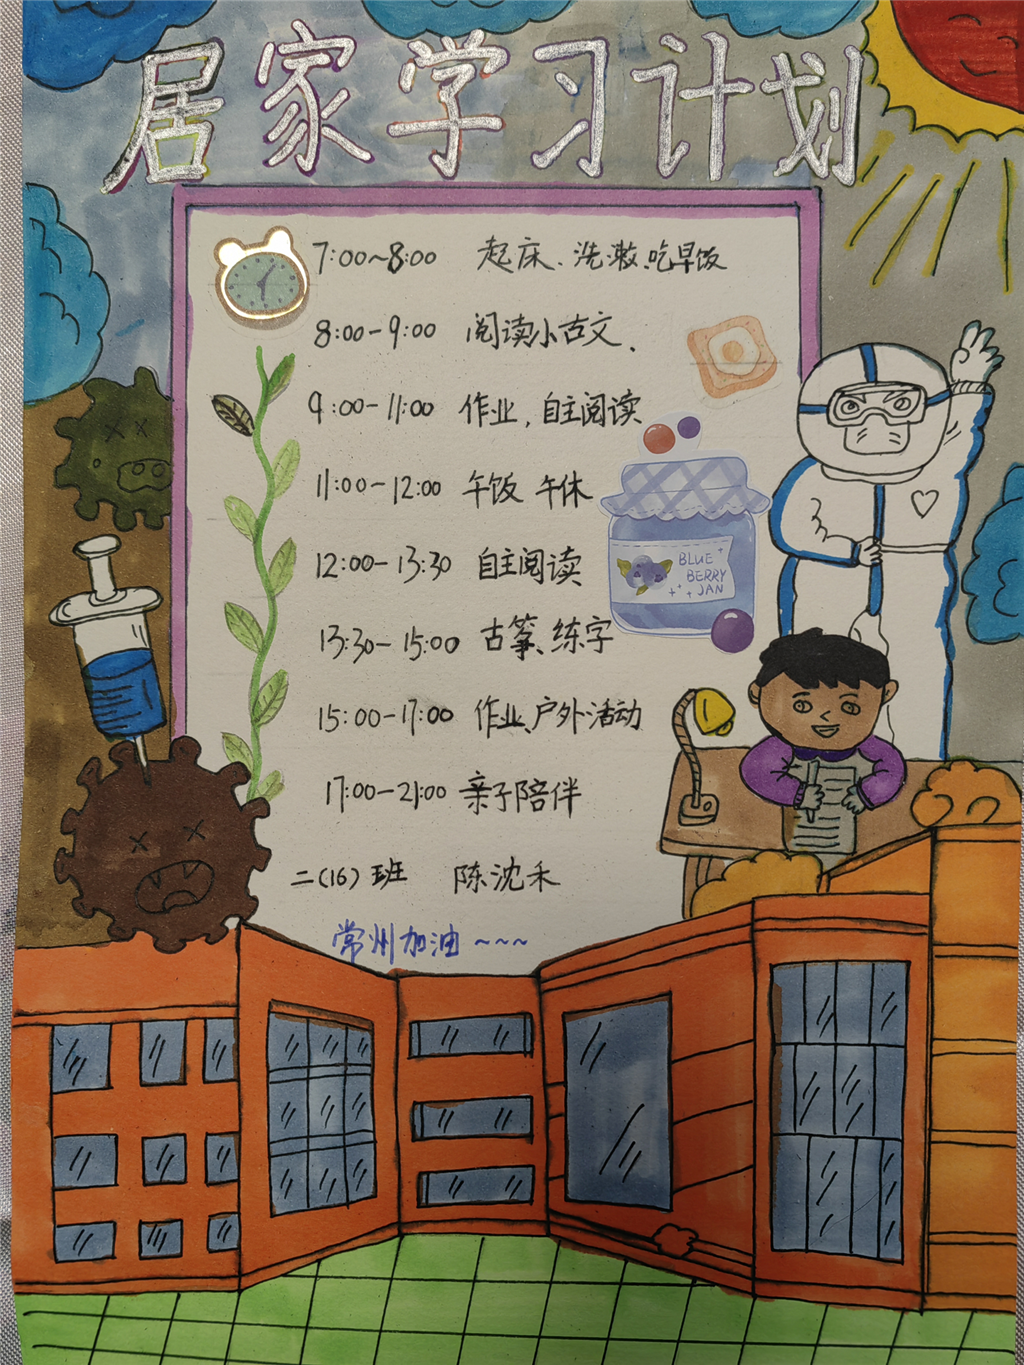 居家学习计划
7:00~8:00 起床、洗漱、吃早饭
8:00-9:00 阅读小古文、
9:00-11:00 作业，自主阅读
11:00-12:00 午饭 午休
12:00-13:30 自主阅读
13:30-15:00 古筝、练字
15:00-17:00 作业、户外活动
17:00-21:00 亲子陪伴
二(16)班 陈沈禾
常州加油~~~
BLUE
BERRY
JAN